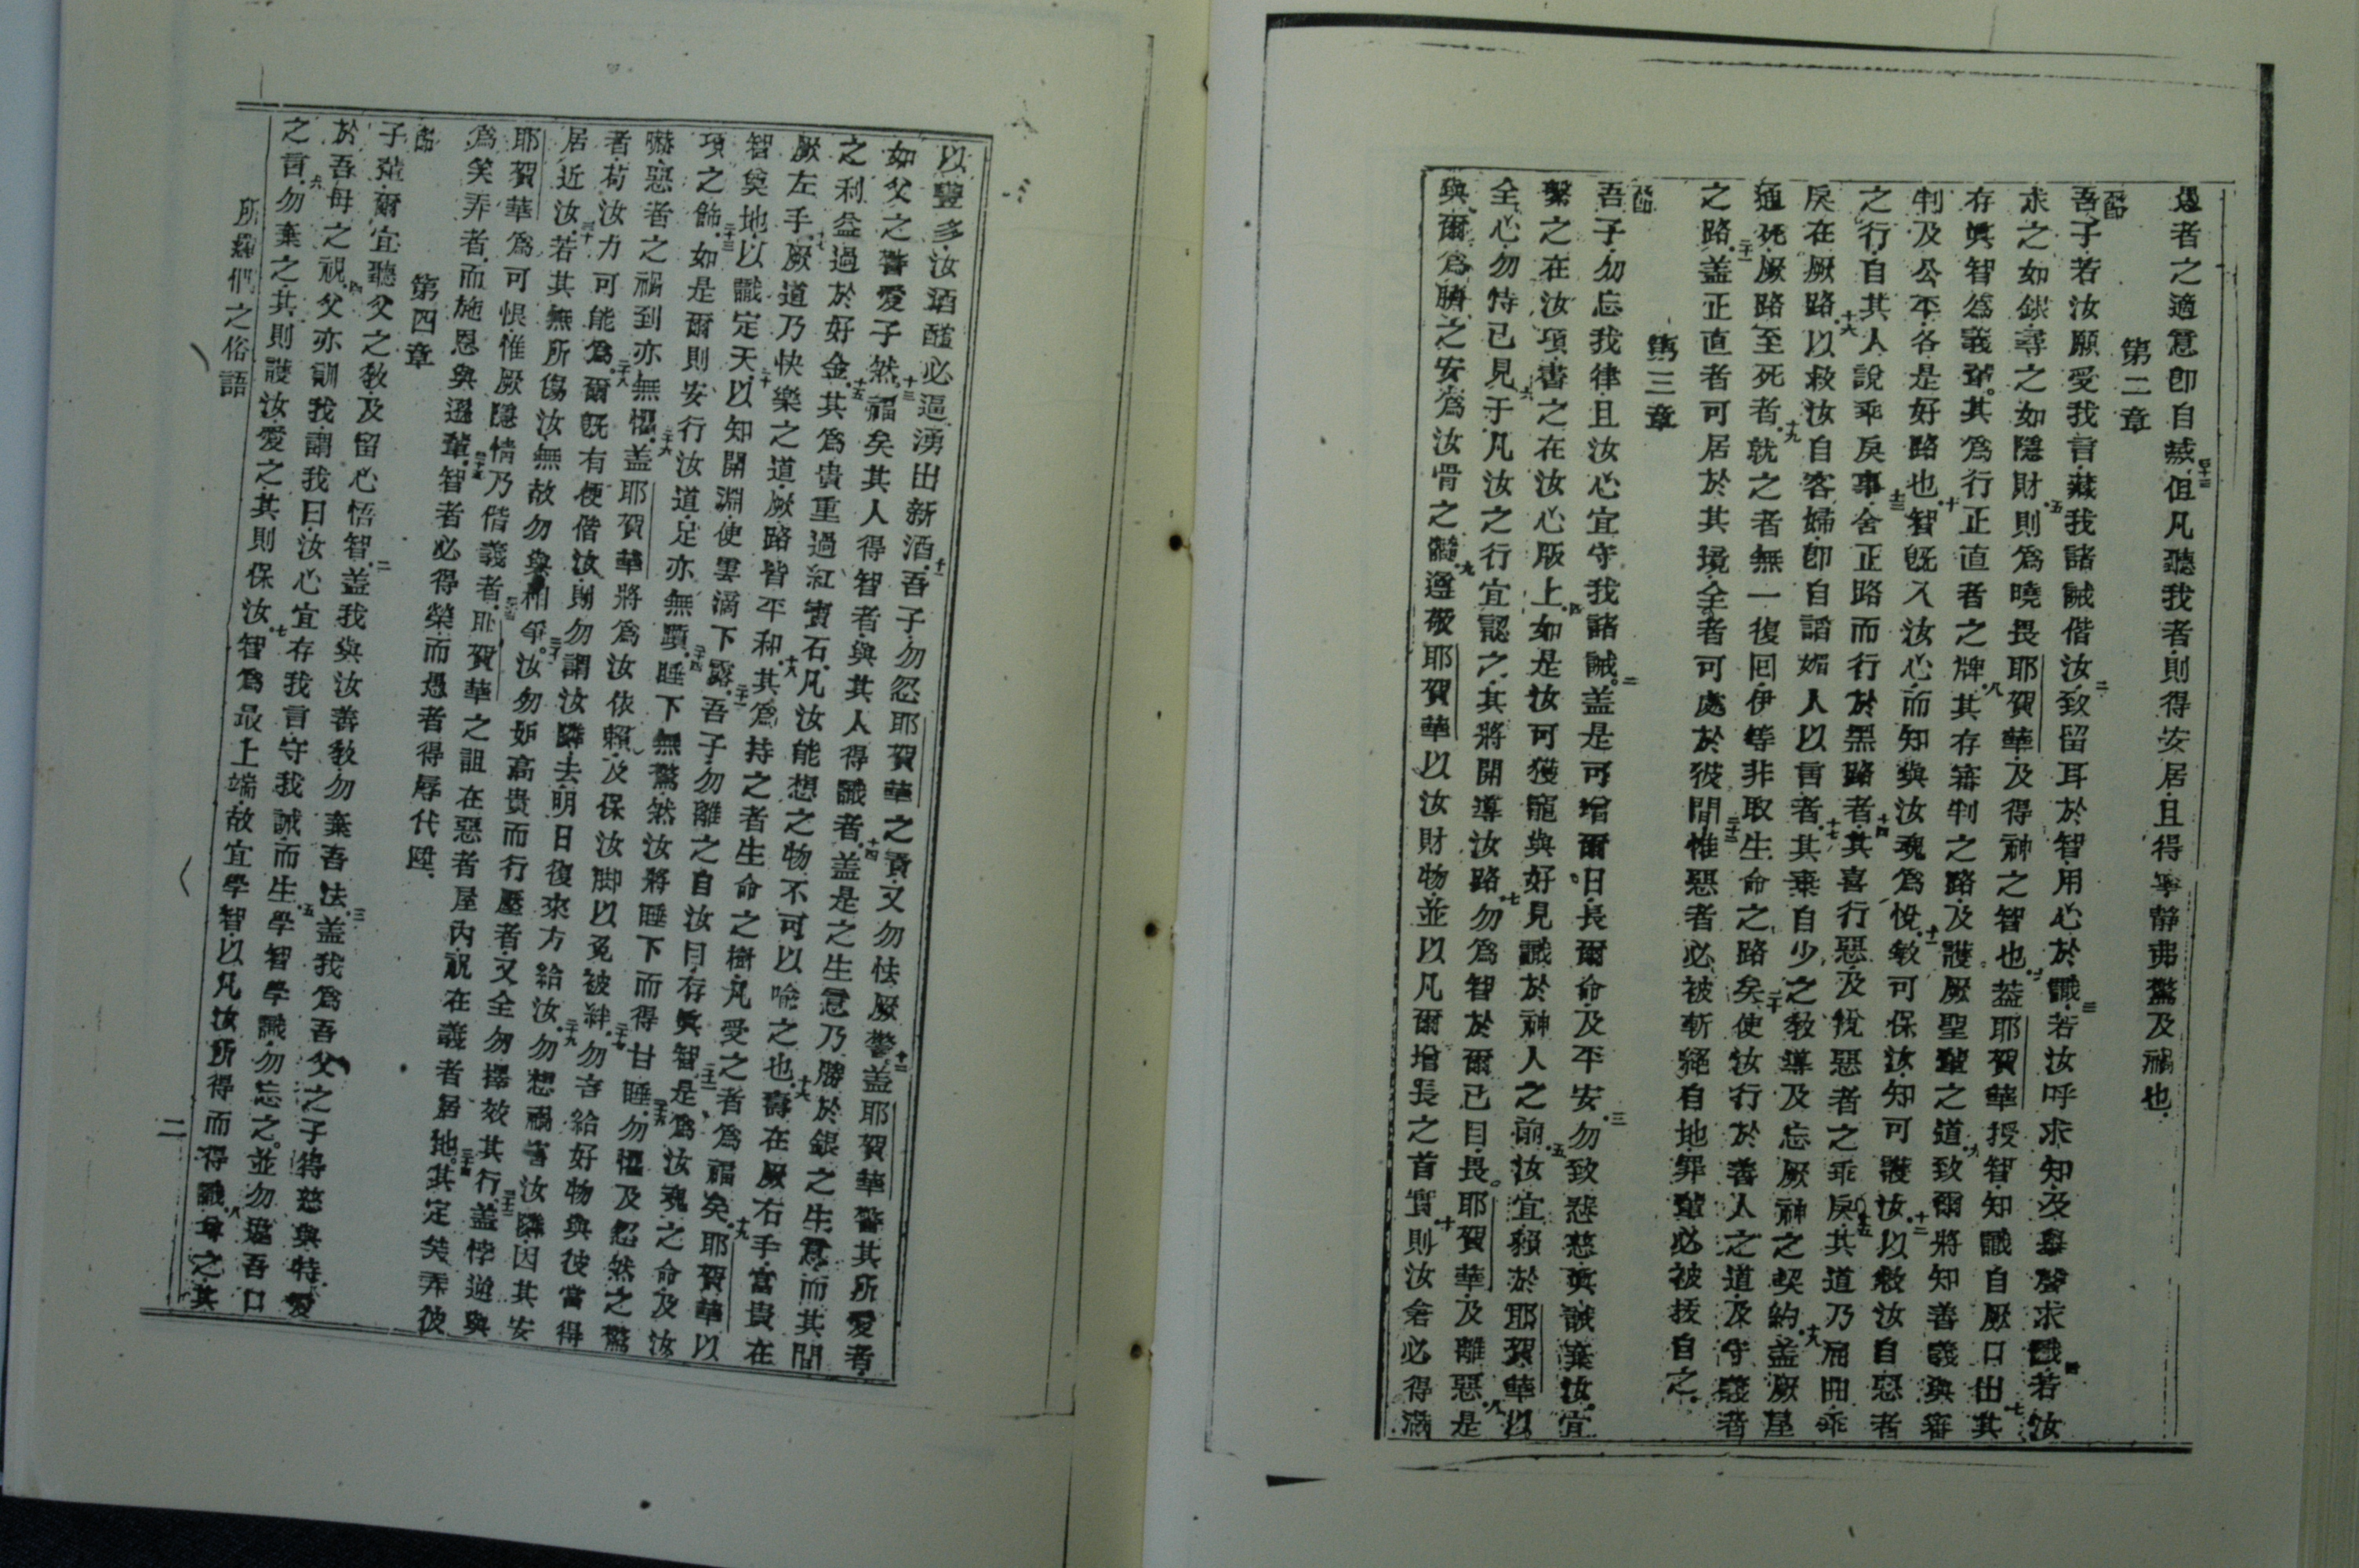 愚者之適意卽自滅四十三但凡聽我者則得安居且得寧靜弗驚及禍也
第二章
節吾子若汝願受我言藏我諸誡偕汝二致留耳於智用心於識三若汝呼求知及舉聲求識四若汝
求之如銀尋之如隱財五則爲曉畏耶賀華及得神之智也六蓋耶賀華授智知識自厥口出其七
存眞智爲義輩其爲行正直者之牌八其存審判之路及護厥聖輩之道九致爾將知善義與審
判及公平各是好路也十智旣入汝心而知與汝魂爲悅十一敎可保汝知可護汝十二以救汝自惡者
之行自其人說乖戾事十三舍正路而行於黑路者十四其喜行惡及悅惡者之乖戾十五其道乃屈曲乖
戾在厥路十六以救汝自客婦卽自謟媚人以言者十七其棄自少之敎導及忘厥神之契約十八蓋厥屋
通死厥路至死者十九就之者無一復回伊等非取生命之路矣二十使汝行於善人之道及守義者
之路二十一蓋正直者可居於其境全者可處於彼間二十二惟惡者必被斬絕自地罪輩必被拔自之
第三章
節吾子勿忘我律且汝心宜守我諸誡二蓋是可增爾日長爾命及平安三勿致慈眞誠棄汝宜
繫之在汝項書之在汝心版上四如是汝可獲寵與好見識於神人之前五汝宜賴於耶賀華以
全心勿恃己見六于凡汝之行宜認之其將開導汝路七勿爲智於爾己目畏耶賀華及離惡八是
與爾爲臍之安爲汝骨之髓九遵敬耶賀華以汝財物並以凡爾增長之首實十則汝倉必得滿
以豐多汝酒醡必逼湧出新酒十一吾子勿忽耶賀華之責又勿怯厥警十二蓋耶賀華警其所愛者
如父之警愛子然十三福矣其人得智者與其人得識者十四蓋是之生意乃勝於銀之生意而其間
之利益過於好金十五其爲貴重過紅寶石凡汝能想之物不可以喩之也十六壽在厥右手富貴在
厥左手十七厥道乃快樂之道厥路皆平和十八其爲持之者生命之樹凡受之者爲福矣十九耶賀華以
智奠地以識定天二十以知開淵使雲滴下露二十一吾子勿離之自汝目存眞智二十二是爲汝魂之命及汝
項之飾二十三如是爾則安行汝道足亦無躓二十四睡下無驚然汝將睡下而得甘睡二十五勿懼及忽然之驚
嚇惡者之禍到亦無懼二十六蓋耶賀華將爲汝依賴及保汝脚以免被絆二十七勿吝給好物與彼當得
者苟汝力可能爲二十八爾旣有便偕汝則勿謂汝隣去明日復來方給汝二十九勿想禍害汝隣因其安
居近汝三十若其無所傷汝無故勿與相爭三十一汝勿妒高貴而行壓者又全勿擇效其行三十二蓋悖逆與
耶賀華爲可恨惟厥隱情乃偕義者三十三耶賀華之詛在惡者屋內祝在義者居地三十四其定笑弄彼
爲笑弄者而施恩與遜輩三十五智者必得榮而愚者得辱代陞
第四章
節子輩爾宜聽父之敎及留心悟智二蓋我與汝善敎勿棄吾法三蓋我爲吾父之子得慈與特愛
於吾母之視四父亦訓我謂我曰汝心宜存我言守我誡而生五學智學識勿忘之並勿違吾口
之言六勿棄之其則護汝愛之其則保汝七智爲最上端故宜學智以凡汝所得而得識八尊之其
所羅們之俗語
二